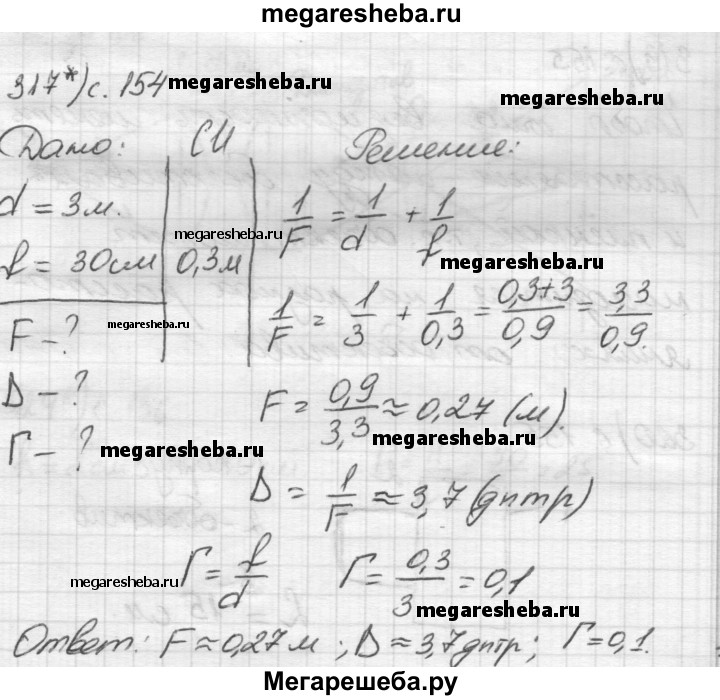 megaresheba.ru
317*) с. 154 megaresheba.ru
megaresheba.ru
Дано: СИ Решение:
d = 3м. 1/F = 1/d + 1/f
megaresheba.ru
f = 30см 0,3м megaresheba.ru
1/F = 1/3 + 1/0,3 = 0,3+3/0,9 = 3,3/0,9.
F - ? megaresheba.ru
D - ? F = 0,9/3,3 ≈ 0,27 (м).
megaresheba.ru
Г - ? megaresheba.ru
D = 1/F ≈ 3,7 (дптр)
megaresheba.ru Г = f/d Г = 0,3/3 = 0,1
megaresheba.ru
Ответ: F ≈ 0,27 м ; D ≈ 3,7 дптр; Г = 0,1.
Мегарешеба.ру